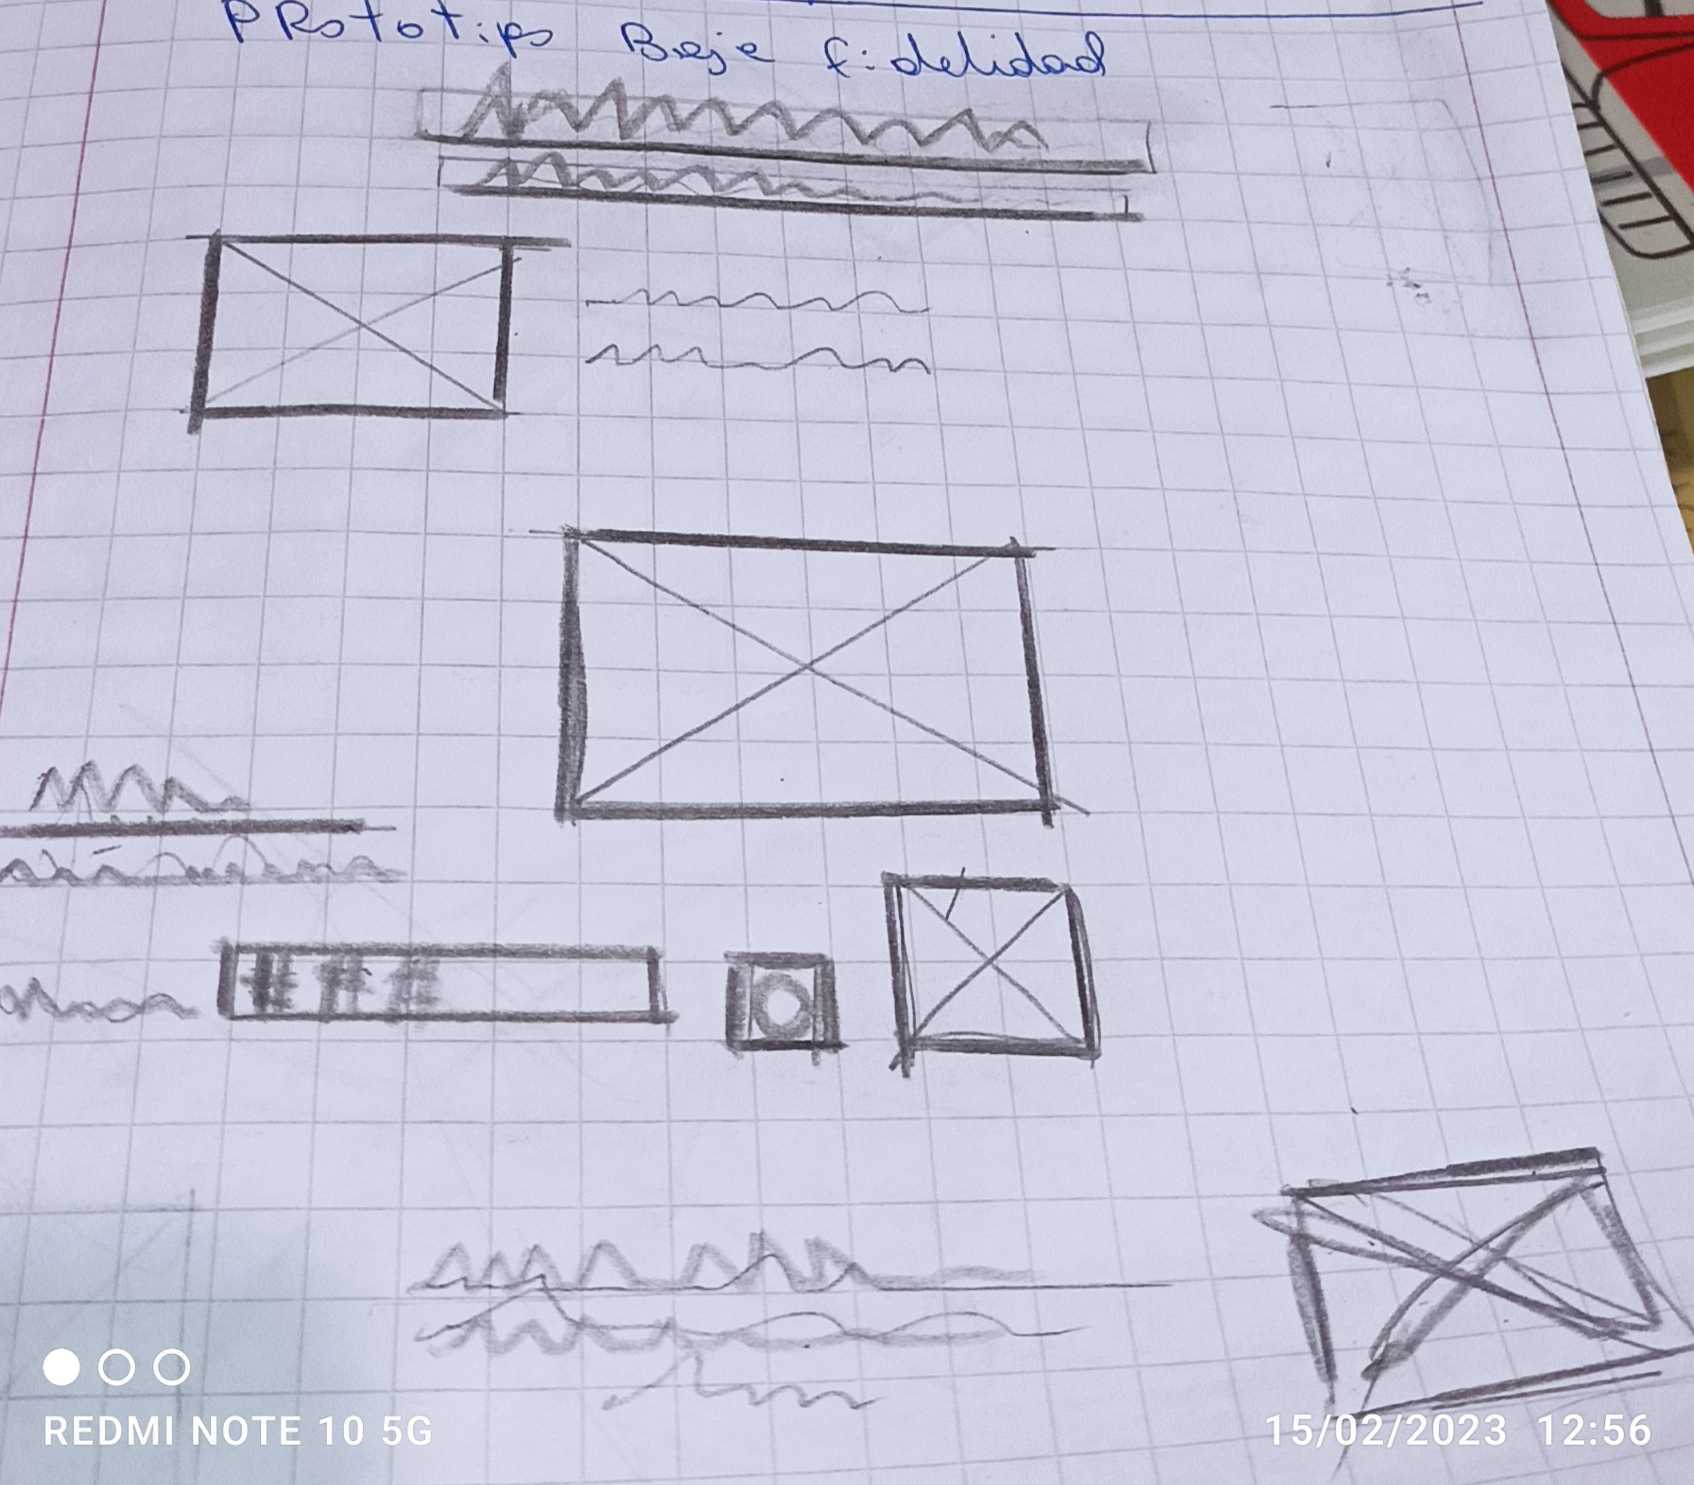 PRototipo Baja fidelidad
###
REDMI NOTE 10 5G
15/02/2023 12:56